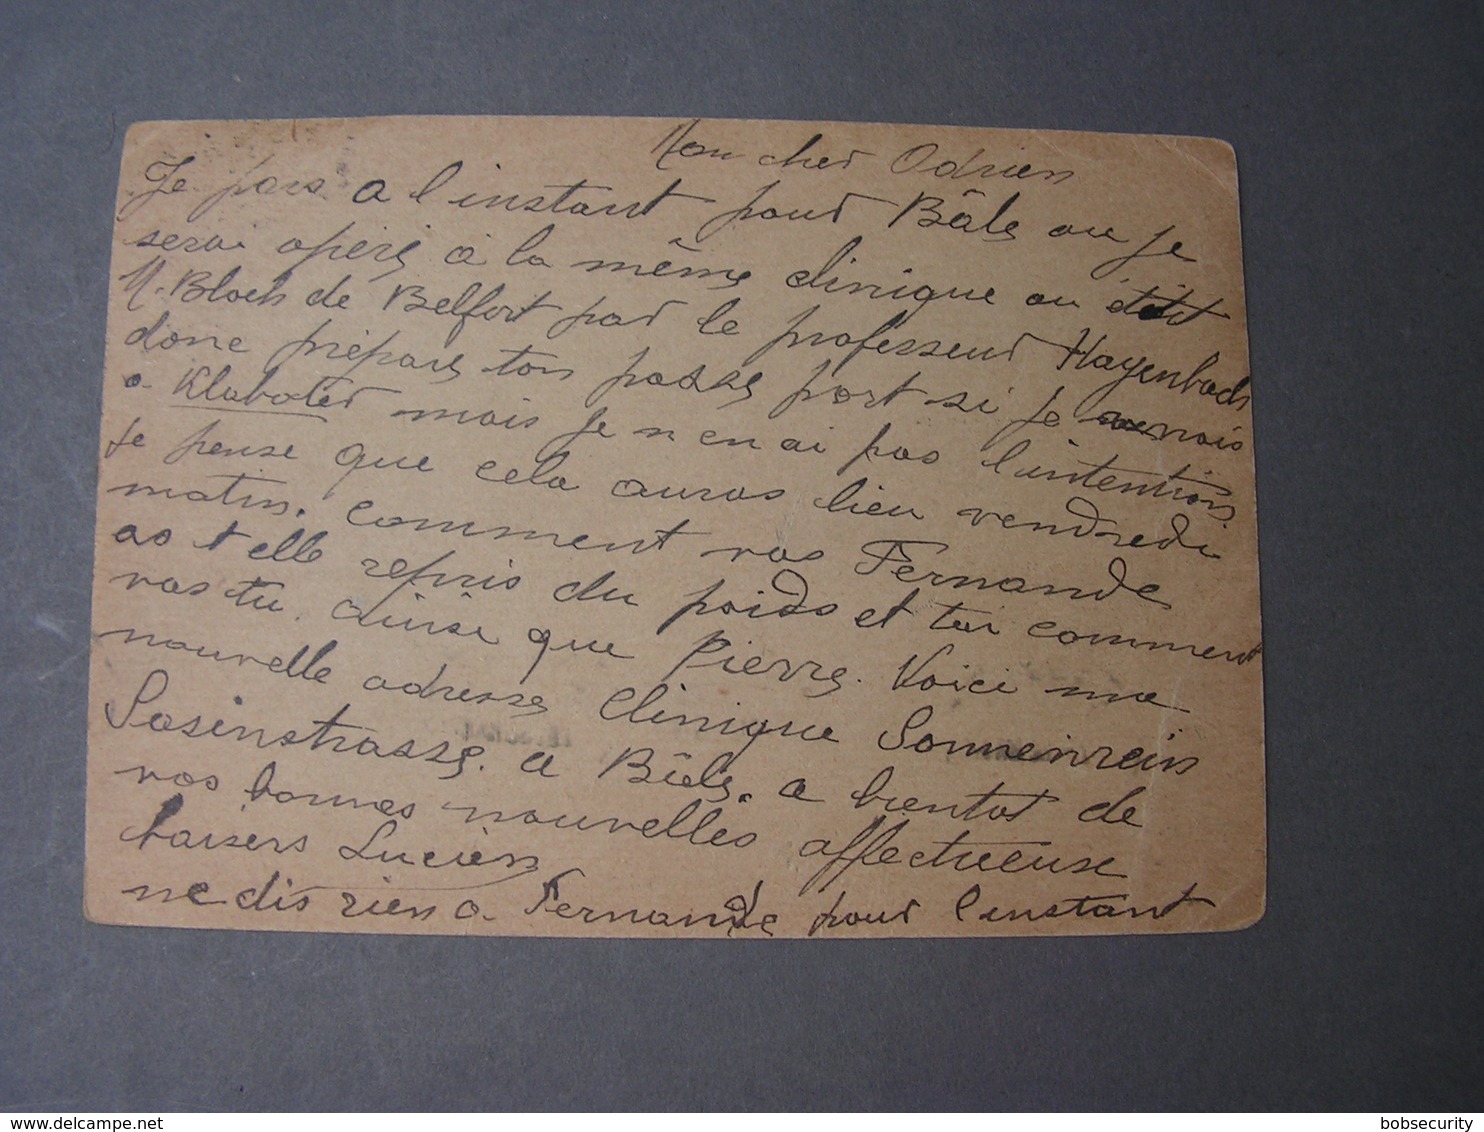 Mon cher Adrien
Je pars a l'instant pour Bâle ou je
serai opéré à la même clinique ou était
M. Bloch de Belfort par le professeur Hagenbach
donc prépare ton passe port si je venais
a Klaboter mais je n en ai pas l'intention.
Je pense que cela auras lieu vendredi
matin. comment vas Fernande
as t elle repris du poids et toi comment
vas tu. ainsi que Pierre. Voici ma
nouvelle adresse Clinique Sonnenrein
Sosinstrasse. a Bâle. a bientot de
vos bonnes nouvelles affectueuse
baisers Lucien
ne dis rien a Fernande pour l'instant
delcampe.net
bobsecurity